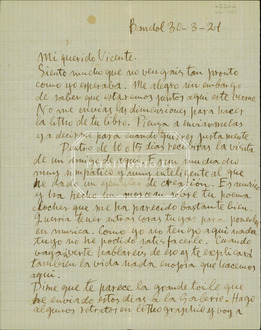 Bandol 30-3-21
Mi querido Vicente.
Siento mucho que no vengais tan pronto
como yo esperaba. Me alegro sin embargo
de saber que estaremos juntos aqui este verano
No me envias las dimensiones para hacer
la litho de tu libro. Piensa a enviarmelas
y a decirme para cuando quieres justamente
Dentro de 10 o 15 dias recibiras la visita
de un amigo de aqui. Es un muchacho
muy simpatico y muy inteligente al que
he dado un ejemplar de creacion. Es musico
y ha hecho un sobre tu poema
noches que me ha parecido bastante bien
Querria tener otras cosas tuyas para ponerlas
en musica. Como yo no tengo aqui nada
tuyo no he podido satisfacerle. Cuando
vaya a verte hablareis de eso y te explicará
tambien la vida que hacemos
aqui.
Dime que te parece la grande toile que
he enviado estos dias a la Galerie. Hago
algunos retratos en lithographie y voy a